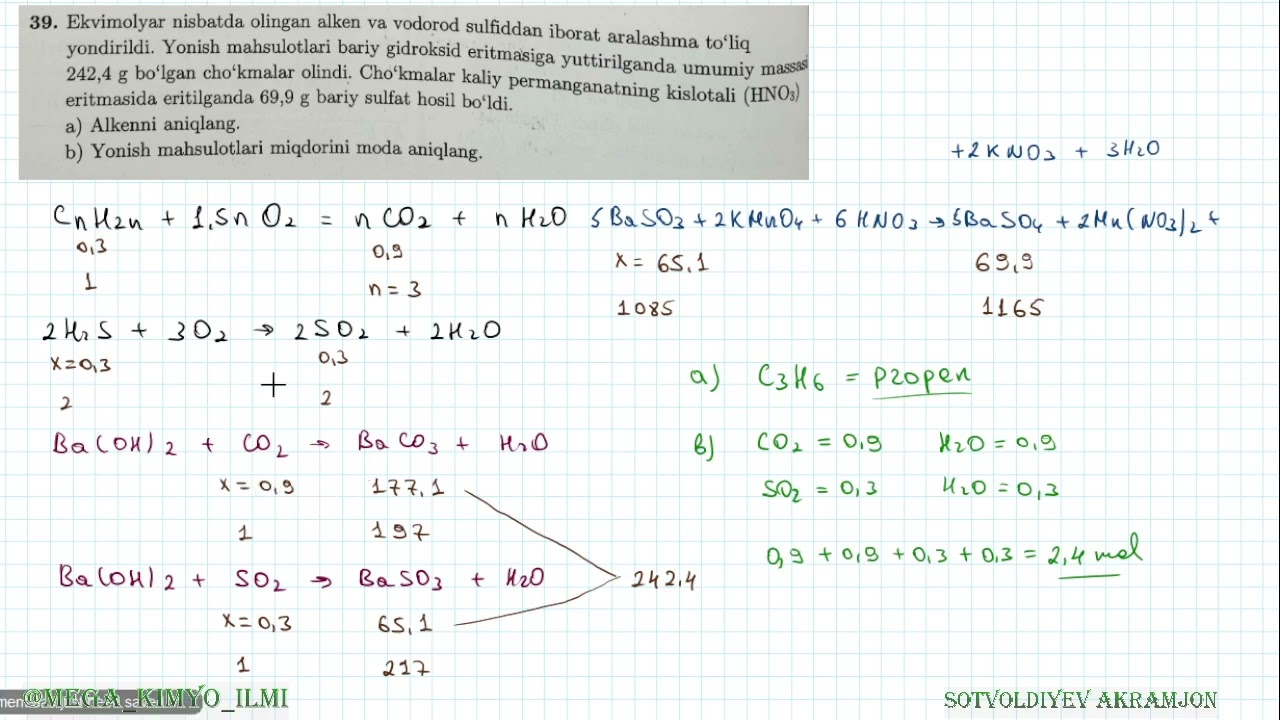 39. Ekvimolyar nisbatda olingan alken va vodorod sulfiddan iborat aralashma to‘liq
yondirildi. Yonish mahsulotlari bariy gidroksid eritmasiga yuttirilganda umumiy massasi
242,4 g bo‘lgan cho‘kmalar olindi. Cho‘kmalar kaliy permanganatning kislotali (HNO₃)
eritmasida eritilganda 69,9 g bariy sulfat hosil bo‘ldi.
a) Alkenni aniqlang.
b) Yonish mahsulotlari miqdorini moda aniqlang.
+2KNO₃ + 3H₂O
CnH2n + 1,5n O₂ = n CO₂ + n H₂O
0,3 0,9
1 n = 3
5BaSO₃ + 2KMnO₄ + 6HNO₃ → 5BaSO₄ + 2Mn(NO₃)₂ +
x = 65,1 69,9
1085 1165
2H₂S + 3O₂ → 2SO₂ + 2H₂O
x=0,3 0,3
2 2
Ba(OH)₂ + CO₂ → BaCO₃ + H₂O
x = 0,9 177,1
1 197
Ba(OH)₂ + SO₂ → BaSO₃ + H₂O
x = 0,3 65,1
1 217
242,4
a) C₃H₆ = propen
b) CO₂ = 0,9 H₂O = 0,9
SO₂ = 0,3 H₂O = 0,3
0,9 + 0,9 + 0,3 + 0,3 = 2,4 mol
@MEGA_KIMYO_ILMI
SOTVOLDIYEV AKRAMJON